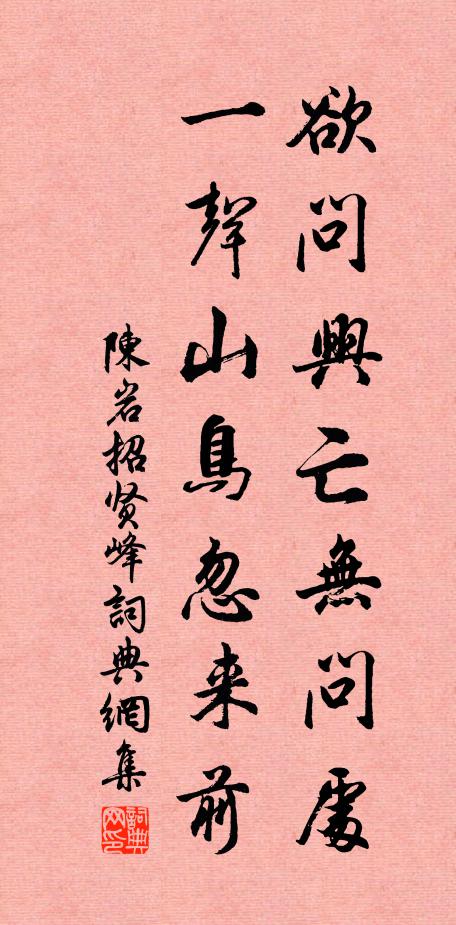 欲問興亡無問處
一聲山鳥忽来前
陳岩招贤峰詞典網集
詞典网印